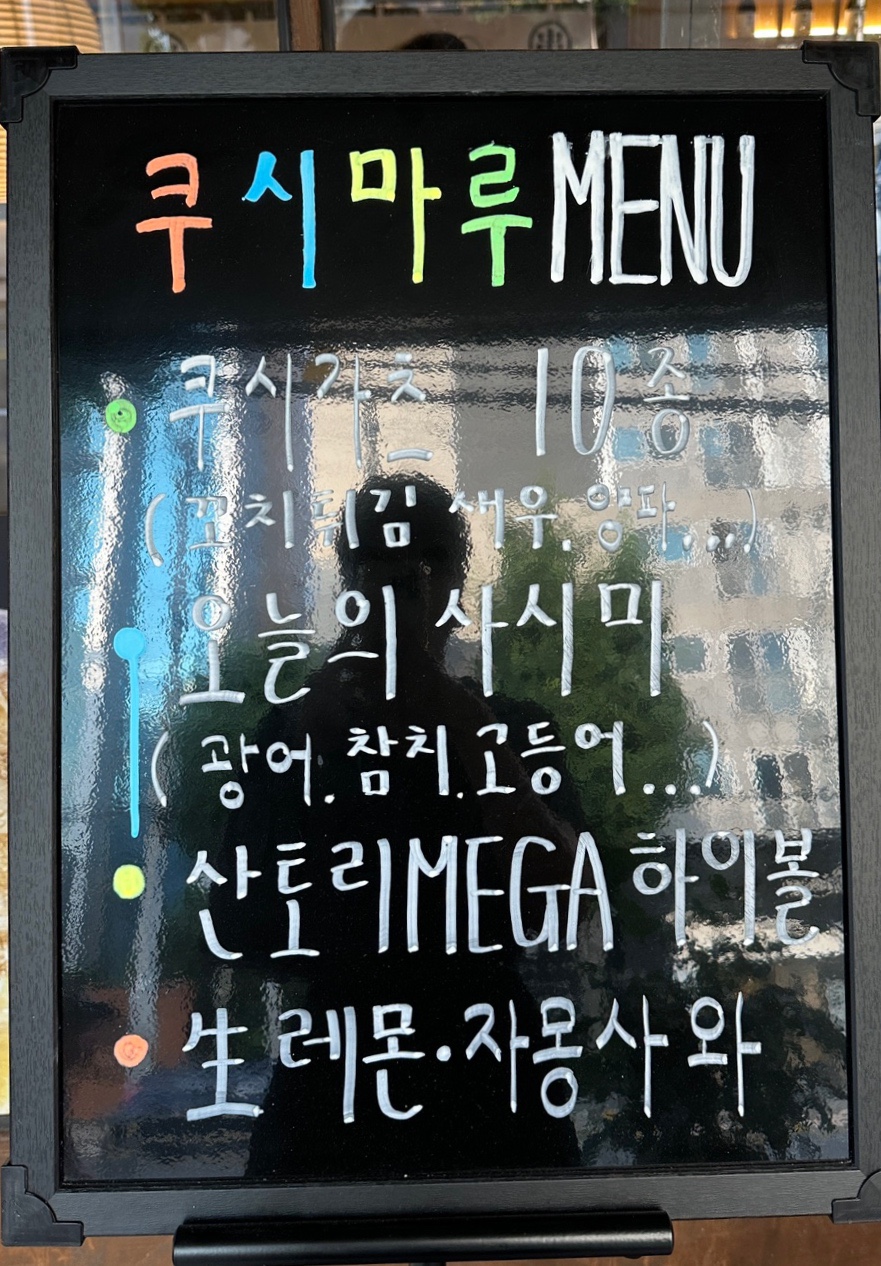 쿠시마루MENU
쿠시카츠 10종
(꼬치튀김 새우.양파...)
오늘의 사시미
(광어.참치.고등어...)
산토리MEGA 하이볼
生레몬·자몽사와